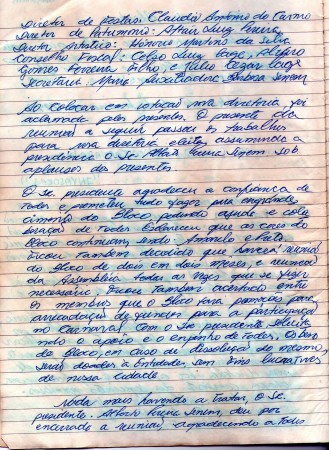 Diretor de Festas: Claudia Antônio do Carmo
Diretor de Patrimonio: Altair Luiz
Diretor Artistico: Honorio Martins da Silva
Conselho Fiscal: Celso Luiz
Gomes Ferreira Filho, e
Secretária: Maria Auxiliadora Barbosa
Ao colocar em votação nova diretoria, foi
aclamada pelos presentes. O presidente da
reunião a seguir passou os trabalhos
para nova diretoria eleita, assumindo a
presidência o Sr. sob
aplausos dos presentes.
O Sr. presidente agradeceu a confiança de
todos e prometeu tudo fazer para engrande-
cimento do Bloco, pedindo ajuda e cola-
boração de todos. Esclareceu que as cores do
Bloco continuam sendo: Amarelo e Preto.
Ficou também decidido que haverá reunião
do Bloco de dois em dois meses e reunião
da Assembléia todas as vezes que se fizer
necessário. Ficou também acertado entre
os membros que o Bloco fará promoções para
arrecadação de fundos para a participação
no Carnaval. Com o Sr. presidente solicita-
ndo o apoio e o empenho de todos. Os bens
do Bloco, em caso de dissolução do mesmo,
serão doados à Entidades sem fins lucrativos
de nossa cidade.
Nada mais havendo a tratar, o Sr.
presidente. deu por
encerrada a reunião, agradecendo a todos